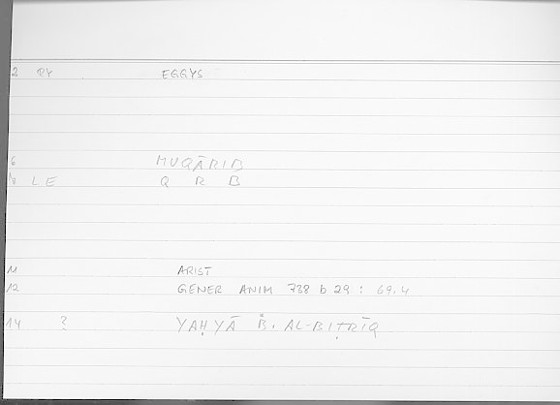 2 PY EGGYS
6 MUQĀRIB
LE Q R B
11 ARIST
12 GENER ANIM 738 b 29 : 69.4
14 ? YAḤYĀ B. AL-BIṬRĪQ